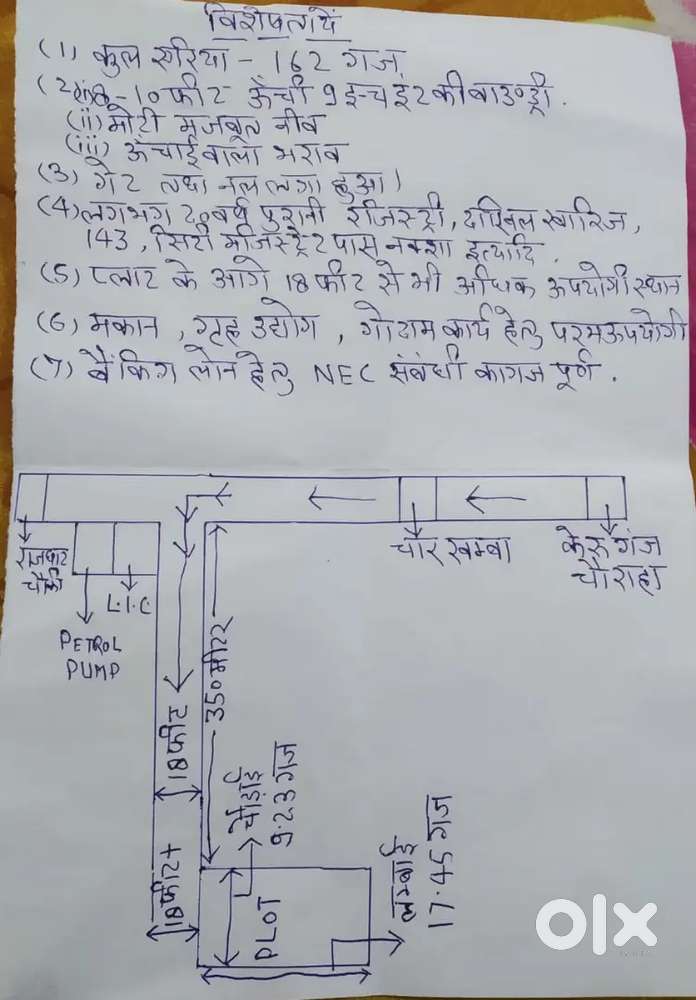 विशेषतायें
(1) कुल एरिया - 162 गज
(2) - 10 फीट ऊँची 9 इन्च ईंट की बाउण्ड्री.
(ii) मोटी मजबूत नीव
(iii) ऊँचाई वाला भराव
(3) गेट तथा नल लगा हुआ।
(4) लगभग 20 वर्ष पुरानी रजिस्ट्री, दाखिल खारिज,
143, सिटी मजिस्ट्रेट पास नक्शा इत्यादि.
(5) प्लाट के आगे 18 फीट से भी अधिक उपयोगी स्थान
(6) मकान, गृह उद्योग, गोदाम कार्य हेतु परम उपयोगी
(7) बैंकिग लोन हेतु NEC संबंधी कागज पूर्ण.
राजघाट
चौकी
L.I.C
PETROL
PUMP
चार खम्बा
केरू गंज
चौराहा
350 मीटर
18 फीट
18 फीट+
चौड़ाई
9.23 गज
PLOT
लम्बाई
17.45 गज
olx